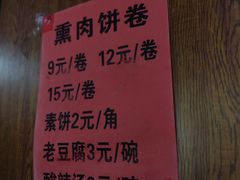 熏肉饼卷
9元/卷 12元/卷
15元/卷
素饼2元/角
老豆腐3元/碗
酸辣汤3元/碗